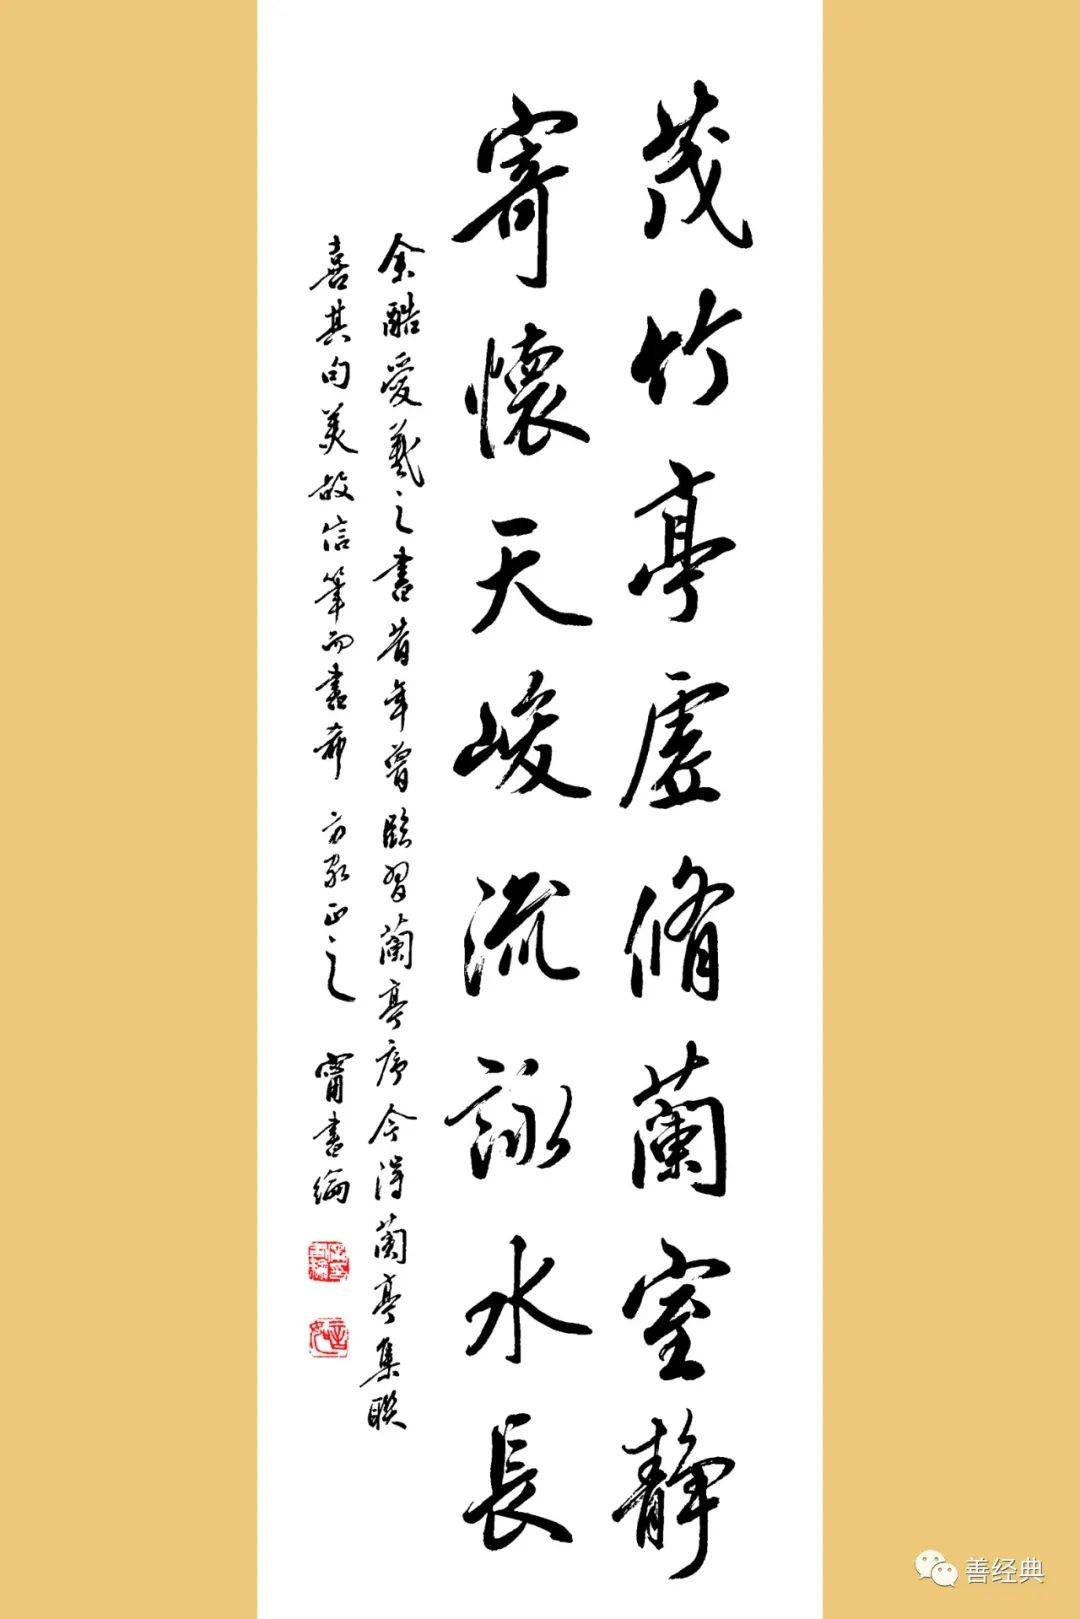 茂竹亭虚脩蘭室靜
寄懷天峻流詠水長
余酷愛羲之書昔年曾臨習蘭亭序今得蘭亭集聯
喜其句美故信筆而書希 方家正之 甯書綸
善经典